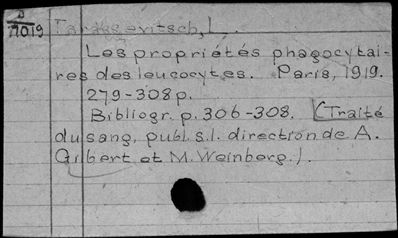 D
11019
Tarassevitsch, L.
Les propriétés phagocytai-
res des leucocytes. Paris, 1919.
279-308 p.
Bibliogr. p. 306-308. (Traité
du sang, publ. s. l. direction de A.
Gilbert et M. Weinberg.).